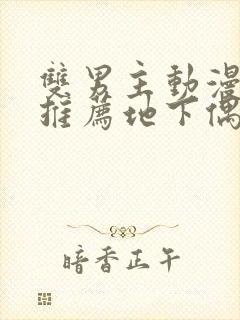 雙男主動漫
推薦地下偶
暗香正午